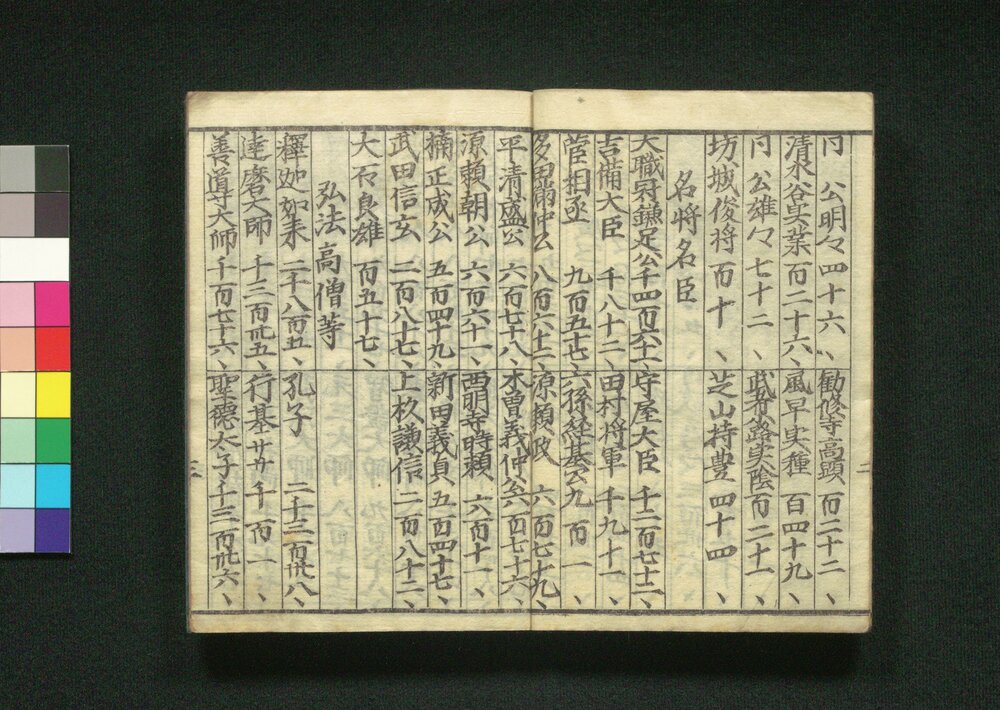 同 公明々 四十六、 勧修寺高顕 百二十二、
清水谷実業 百二十六、 風早実種 百四十九、
同 公雄々 七十二、 武者小路実陰 百二十一、
坊城俊将 百十、 芝山持豊 四十四、
名将名臣
大職冠鎌足公 千四百六十一、 守屋大臣 千二百七十二、
吉備大臣 千八十二、 田村将軍 千九十一、
菅相丞 九百五十七、 六孫経基公 九百一、
二
多田満仲公 八百六十二、 源頼政 六百七十九、
平清盛公 六百七十八、 木曽義仲公 六百七十六、
源頼朝公 六百六十一、 西明寺時頼 六百十一、
楠正成公 五百四十九、 新田義貞 五百四十七、
武田信玄 二百八十七、 上杦謙信 二百八十二、
大石良雄 百五十七、
弘法高僧等
釋迦如来 二千八百五、 孔子 二千三百卅八、
達磨大師 千三百卅五、 行基卄卄 千百一、
善導大師 千百七十六、 聖徳太子 千二百卅六、
三